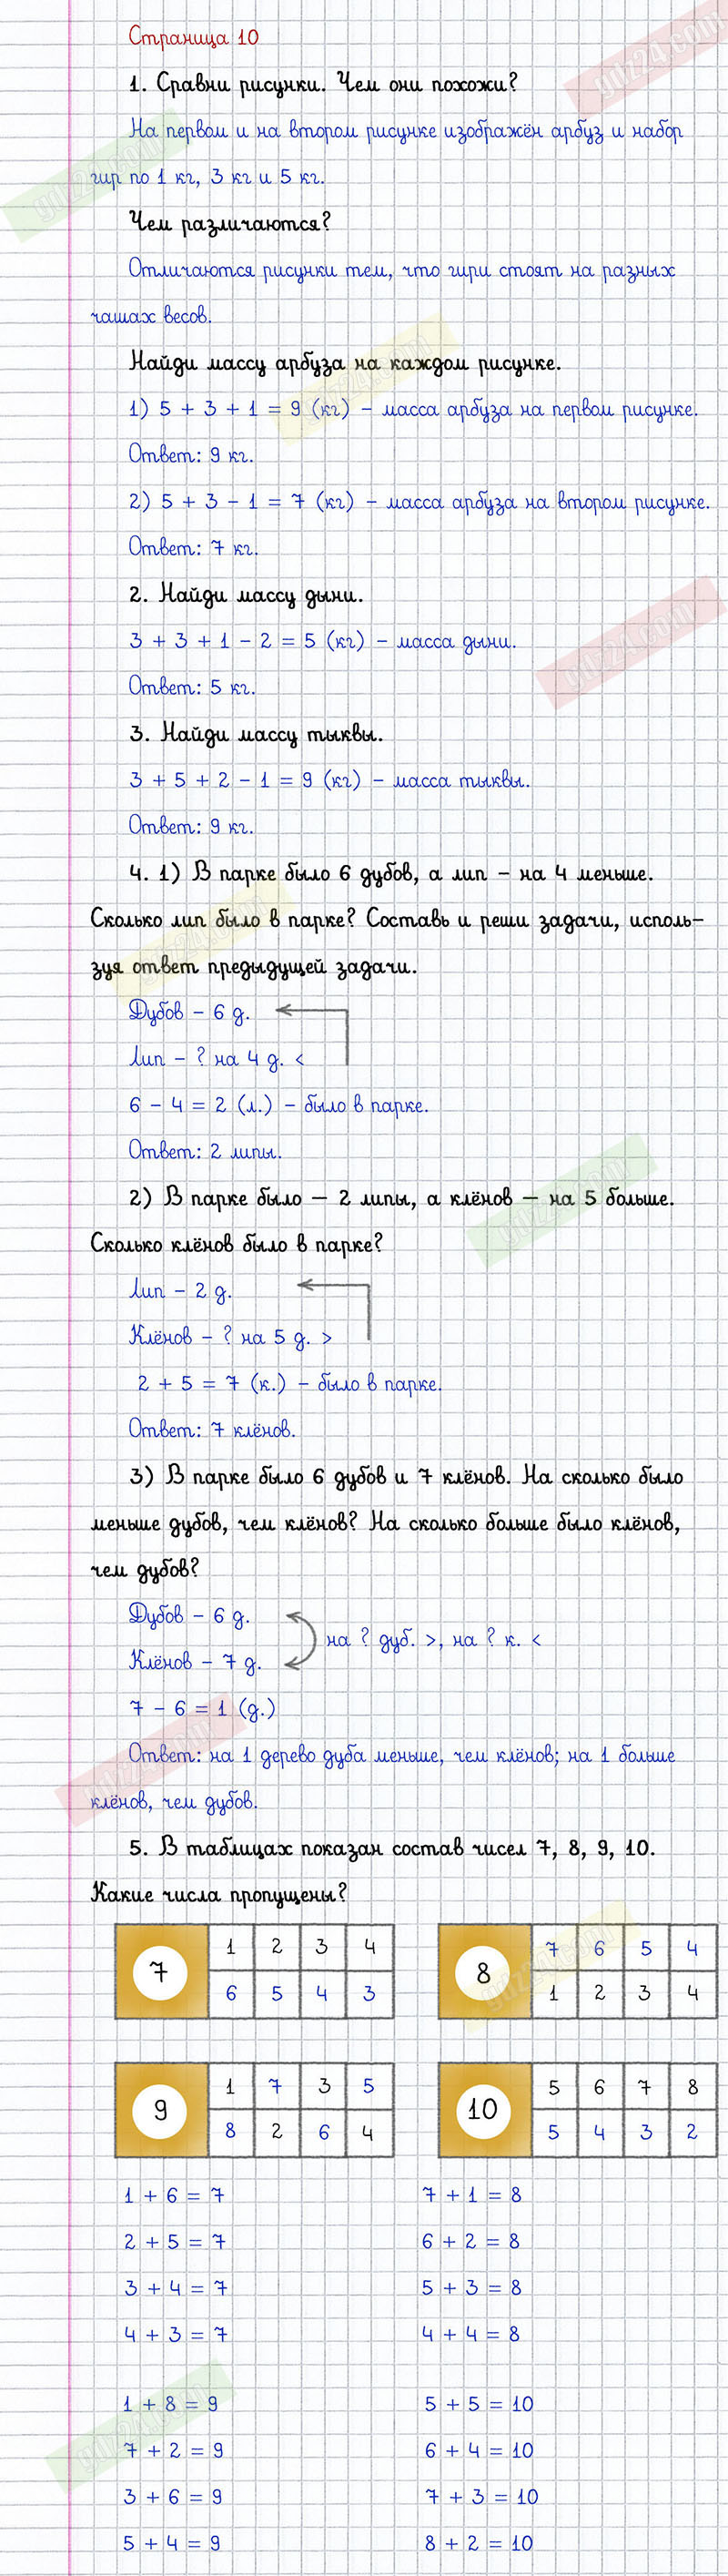 Страница 10
1. Сравни рисунки. Чем они похожи?
На первом и на втором рисунке изображён арбуз и набор
гир по 1 кг, 3 кг и 5 кг.
Чем различаются?
Отличаются рисунки тем, что гири стоят на разных
чашах весов.
Найди массу арбуза на каждом рисунке.
1) 5 + 3 + 1 = 9 (кг) – масса арбуза на первом рисунке.
Ответ: 9 кг.
2) 5 + 3 – 1 = 7 (кг) – масса арбуза на втором рисунке.
Ответ: 7 кг.
2. Найди массу дыни.
3 + 3 + 1 – 2 = 5 (кг) – масса дыни.
Ответ: 5 кг.
3. Найди массу тыквы.
3 + 5 + 2 – 1 = 9 (кг) – масса тыквы.
Ответ: 9 кг.
4. 1) В парке было 6 дубов, а лип – на 4 меньше.
Сколько лип было в парке? Составь и реши задачи, исполь–
зуя ответ предыдущей задачи.
Дубов – 6 д.
Лип – ? на 4 д. <
6 – 4 = 2 (л.) – было в парке.
Ответ: 2 липы.
2) В парке было — 2 липы, а клёнов — на 5 больше.
Сколько клёнов было в парке?
Лип – 2 д.
Клёнов – ? на 5 д. >
2 + 5 = 7 (к.) – было в парке.
Ответ: 7 клёнов.
3) В парке было 6 дубов и 7 клёнов. На сколько было
меньше дубов, чем клёнов? На сколько больше было клёнов,
чем дубов?
Дубов – 6 д.
на ? дуб. >, на ? к. <
Клёнов – 7 д.
7 – 6 = 1 (д.)
Ответ: на 1 дерево дуба меньше, чем клёнов; на 1 больше
клёнов, чем дубов.
5. В таблицах показан состав чисел 7, 8, 9, 10.
Какие числа пропущены?
7 1 2 3 4 8 7 6 5 4
6 5 4 3 1 2 3 4
9 1 7 3 5 10 5 6 7 8
8 2 6 4 5 4 3 2
1 + 6 = 7 7 + 1 = 8
2 + 5 = 7 6 + 2 = 8
3 + 4 = 7 5 + 3 = 8
4 + 3 = 7 4 + 4 = 8
1 + 8 = 9 5 + 5 = 10
7 + 2 = 9 6 + 4 = 10
3 + 6 = 9 7 + 3 = 10
5 + 4 = 9 8 + 2 = 10
gdz24.com
gdz24.com
gdz24.com
gdz24.com
gdz24.com
gdz24.com
gdz24.com
gdz24.com
gdz24.com